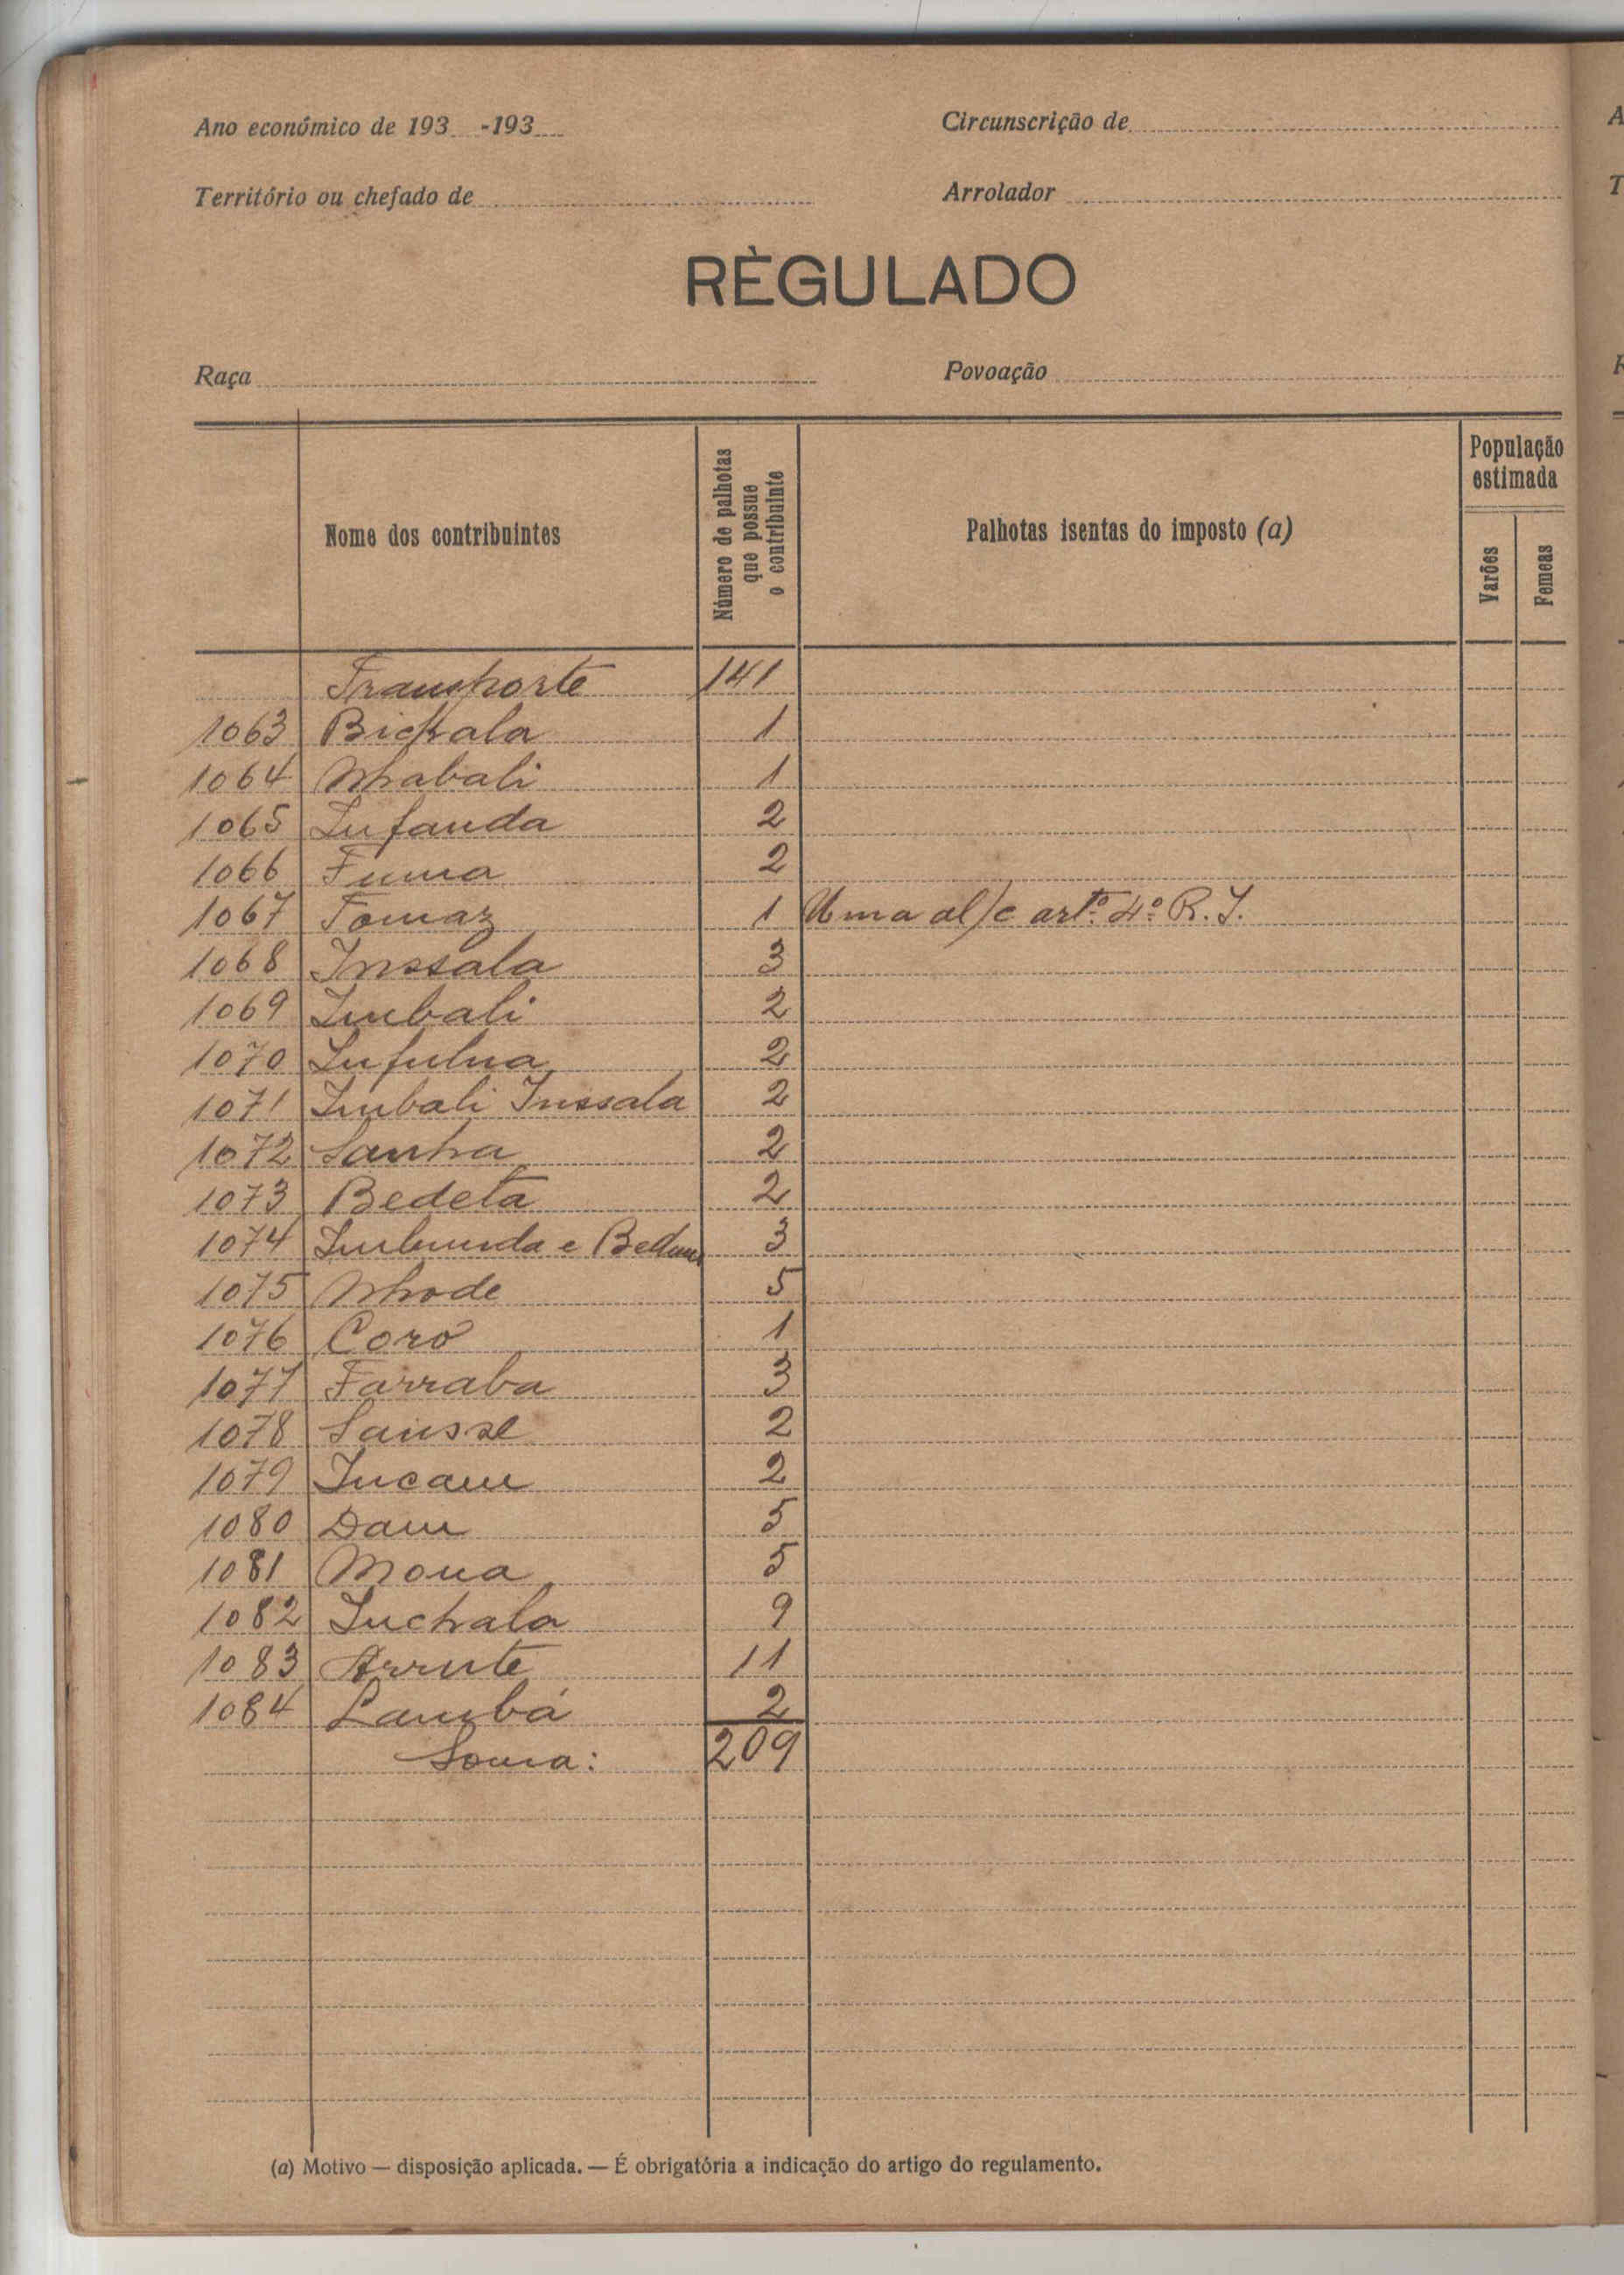 Ano económico de 193 -193 Circunscrição de
Território ou chefado de Arrolador
RÈGULADO
Raça Povoação
Nome dos contribuintes
Número de palhotas que possue o contribuinte
Palhotas isentas do imposto (a)
População estimada
Varões
Femeas
Transporte 141
1063 Bichala 1
1064 Nhabali 1
1065 Infanda 2
1066 Fuma 2
1067 Tomaz 1 Uma al/c artº 4º R. I.
1068 Inssala 3
1069 Imbali 2
1070 Infulna 2
1071 Imbali Inssala 2
1072 Sanha 2
1073 Bedeta 2
1074 Imbunda e 3
1075 Nhode 5
1076 Coro 1
1077 Farraba 3
1078 Sansse 2
1079 Incam 2
1080 Dam 5
1081 Mona 5
1082 Inchala 9
1083 Arrute 11
1084 Lambá 2
Soma: 209
(a) Motivo — disposição aplicada. — É obrigatória a indicação do artigo do regulamento.